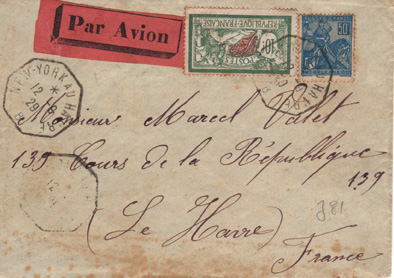 Par Avion
REPUBLIQUE FRANÇAISE
10F
POSTES
50
NEW-YORK AU HAVRE
12
29
Monsieur Marcel Valet
139 Cours de la République
139
Le Havre
J81
France